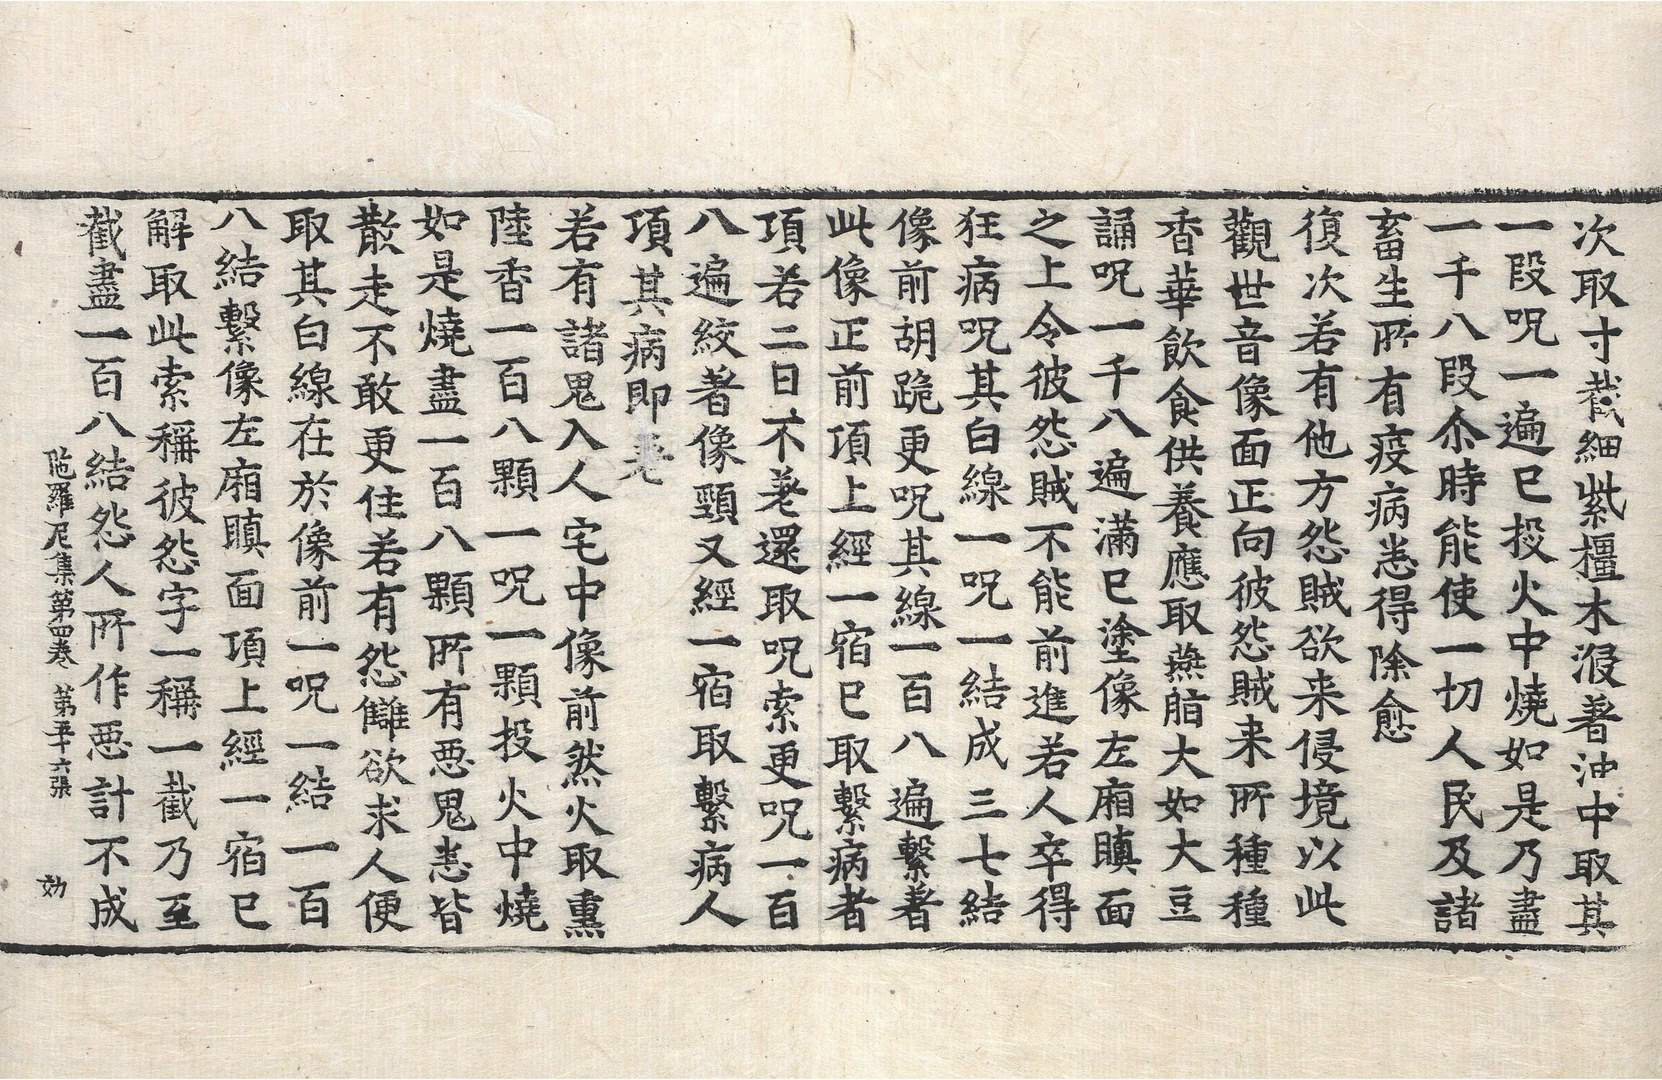 次取寸截細紫橿木浸著油中取其
一段呪一遍已投火中燒如是乃盡
一千八段尒時能使一切人民及諸
畜生所有疫病悉得除愈
復次若有他方怨賊欲来侵境以此
觀世音像面正向彼怨賊来所種種
香華飲食供養應取燕脂大如大豆
誦呪一千八遍滿已塗像左廂瞋面
之上令彼怨賊不能前進若人卒得
狂病呪其白線一呪一結成三七結
像前胡跪更呪其線一百八遍繫著
此像正前項上經一宿已取繫病者
項若二日不差還取呪索更呪一百
八遍絞著像頸又經一宿取繫病人
項其病即差
若有諸鬼入人宅中像前然火取熏
陸香一百八顆一呪一顆投火中燒
如是燒盡一百八顆所有惡鬼悉皆
散走不敢更住若有怨讎欲求人便
取其白線在於像前一呪一結一百
八結繫像左廂瞋面項上經一宿已
解取此索稱彼怨字一稱一截乃至
截盡一百八結怨人所作惡計不成
陁羅尼集第四卷　第五十六張　効